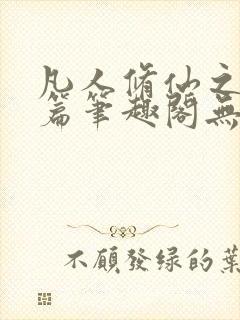 凡人脩仙之
篇筆趣閣無
不願發綠的葉